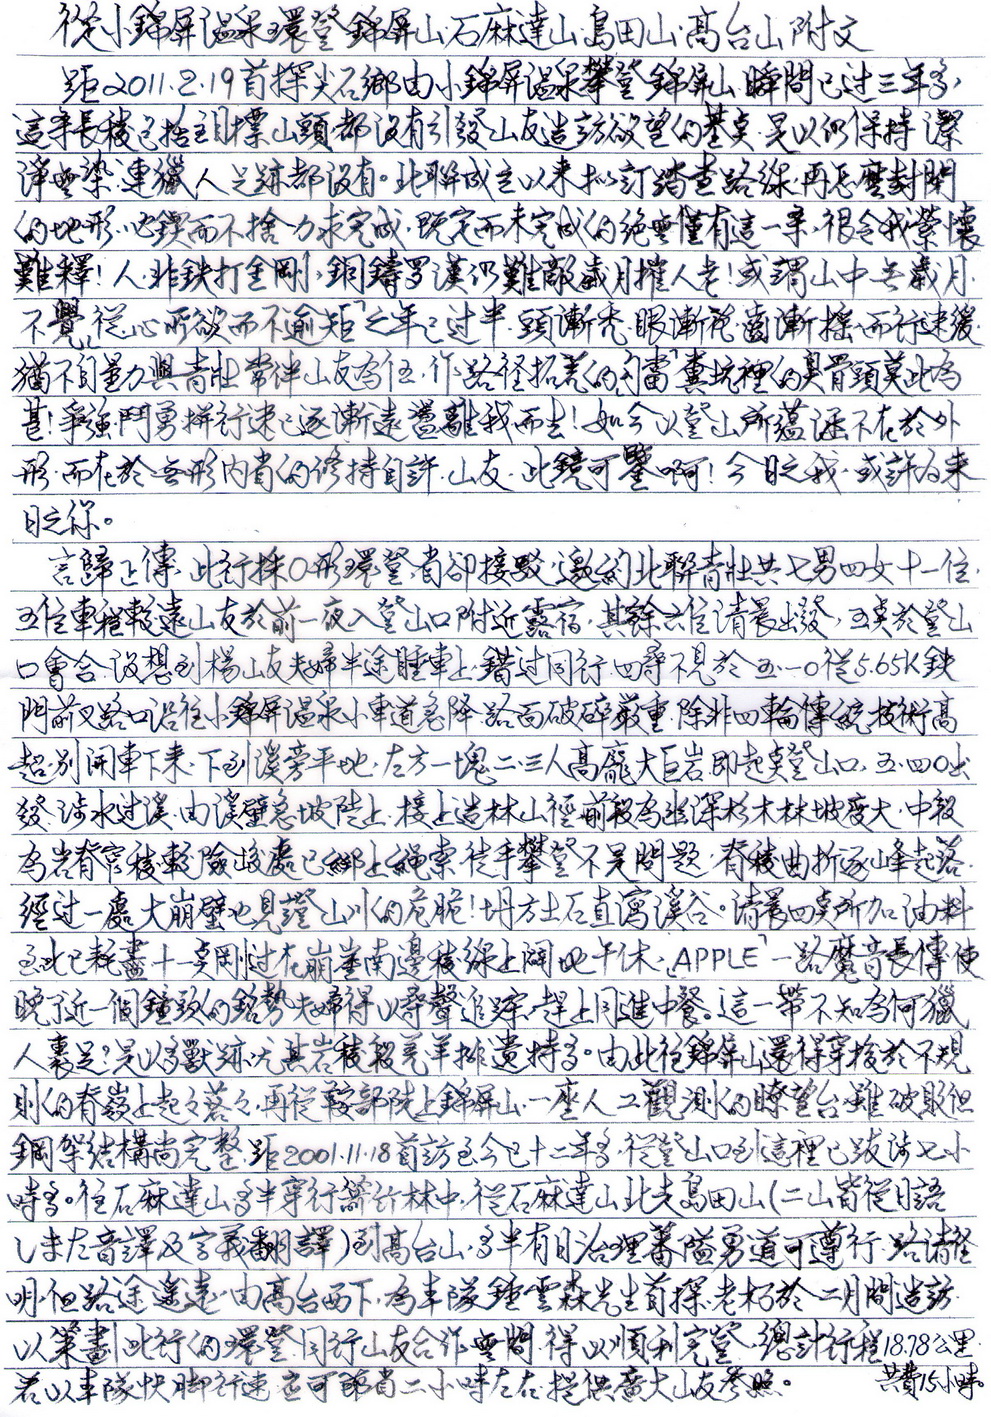 從小錦屏溫泉環登錦屏山.石麻達山.島田山.高台山附文
距2011.2.19首探尖石鄉由小錦屏溫泉攀登錦屏山.瞬間已过三年多,
這条長稜包括主目標山頭.都沒有引發山友造訪欲望的基点.是以仍保持潔
淨無染.連獵人足跡都沒有。北聯成立以來拟訂踏查路線.再怎麼封閉
的地形.必鍥而不捨力求完成,既定而未完成的絶無僅有這一条,很令我縈懷
難釋!人.非鉄打金剛,銅鑄羅漢仍難敵歲月摧人老!或謂山中無歲月.
不覺從心所欲而不逾矩之年已过半.頭漸禿.眼漸花.齒漸搖.而行速緩
猶不自量力與青壯常伴山友為伍.作路径拓荒的角當.糞坑裡的臭骨頭莫此為
甚!爭強鬥勇拼行速已逐漸遠離我而去!如今以登山所蘊涵不在於外
形.而在於無形內省的修持自許.山友.此鏡可鑒啊!今日之我.或許為未
日之你。
言歸正傳.此行採O形環登.省卻接駁.邀約北聯青壯共七男四女十一位.
五位車程較遠山友於前一夜入登山口附近露宿.其餘六位清晨出發,五点於登山
口會合.沒想到楊山友夫婦半途睡車上.錯过同行.四尋不見於五一0從5.65K鉄
門前叉路口沿往小錦屏溫泉小車道急降.路面破碎嚴重.除非四輪傳統技術高
超.別開車下來.下到溪旁平地.左方一塊二.三人高龐大巨岩.即起点登山口.五.四0出
發.涉水过溪.由溪壁急坡陡上.接上造林山徑.前段為幽深杉木林坡度大.中段
為岩脊窄稜.較險峻處已綁上繩索.徒手攀登不是問題.脊稜曲折逐峰起落.
經过一處大崩壁.也見證山川的危脆!坍方土石直瀉溪谷。清晨四点所加油料
至此已耗盡.十一点剛过在崩崖南邊稜線上闊地午休.「APPLE」一路魔音長傳使
晚了近一個鐘頭的銘勢夫婦得以尋聲追踪.趕上同進中餐。這一帶不知為何獵
人裹足?是以多獸跡.尤其岩稜段羌羊排遺特多。由此往錦屏山還得穿梭於不規
則的脊嶺上起起落落.再從鞍部陡上錦屏山.一座人工觀測的瞭望台雖破敗但
鋼架結構尚完整.距2001.11.18首訪至今已十二年多.從登山口到這裡已跋涉七小
時多。往石麻達山多半穿行箭竹林中.從石麻達山北走島田山(二山皆從日語
しまだ音譯及字義翻譯)到高台山.多半有日治理蕃隘勇道可遵行.路諸径
明.但路途遙遠.由高台西下.為車隊鍾雲森先生首探.老朽於二月間造訪.
以策劃此行的環登.同行山友合作無間.得以順利完登.總計行程18.78公里.
若以車隊快腳行速.應可節省二小時左右.提供廣大山友參照。共費15小時。